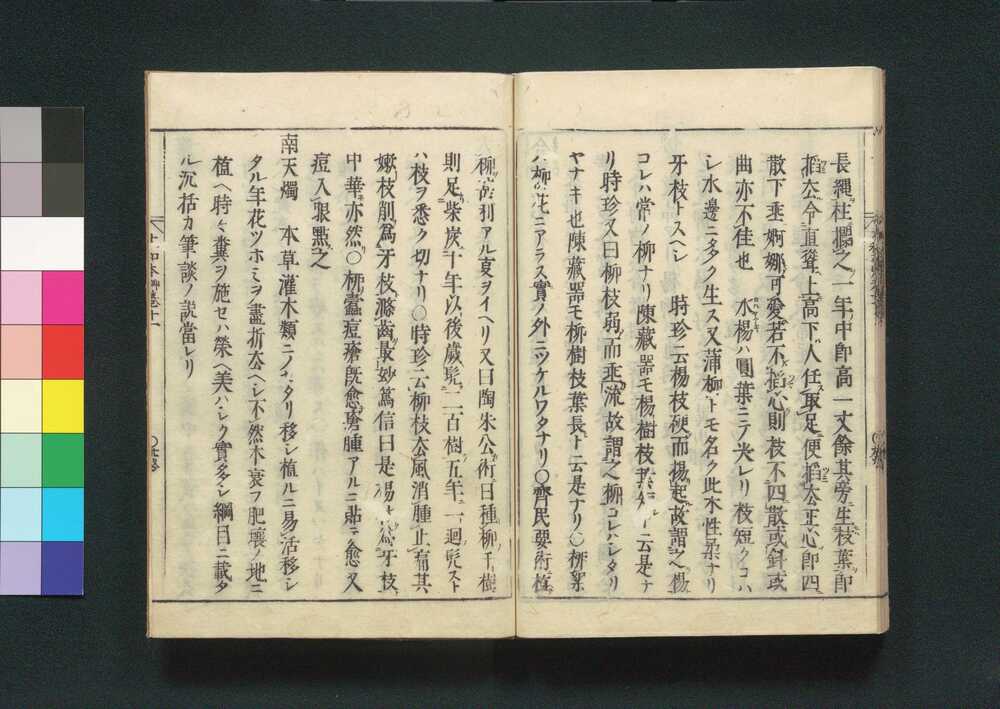 長縄柱攔之一年中即高一丈餘其旁生枝葉即
掐去令直聳上高下人任取足便掐去正心即四
散下垂婀娜可愛若不掐心則枝不四散或斜或
曲亦不佳也　水楊ハ圓葉ニテ尖レリ枝短クコハ
シ水邊ニ多ク生ス又蒲柳トモ名ク此木性柔ナリ
牙枝トスヘシ　時珍云楊枝硬而揚起故謂之楊
コレハ常ノ柳ナリ陳藏器モ楊樹枝 ト云是ナ
リ時珍又曰柳枝弱而垂流故謂之柳コレハシタリ
ヤナキ也陳藏器モ柳樹枝葉長ト云是ナリ〇柳絮
ハ柳ノ花ニアラス實ノ外ニツケルワタナリ〇齊民要術植
柳 利アル叓ヲイヘリ又曰陶朱公術曰種柳千樹
則足柴炭十年以後歲髠二百樹五年一迴髠スト
ハ枝ヲ悉ク切ナリ〇時珍云柳枝去風消腫止痛其
嫩枝削爲牙枝滌齒最妙篤信曰是楊 牙枝
中華亦然〇柳蠧痘瘡既愈 腫アルニ貼テ愈又
痘入眼點之
南天燭　本草灌木類ニノセタリ移シ植ルニ易活移シ
タル年花ツホミヲ盡折去ヘシ不然木衰フ肥壤ノ地ニ
植ヘ時々糞ヲ施セハ榮ヘ美ハシク實多シ綱目ニ載タ
ル沉括カ筆談ノ説當レリ